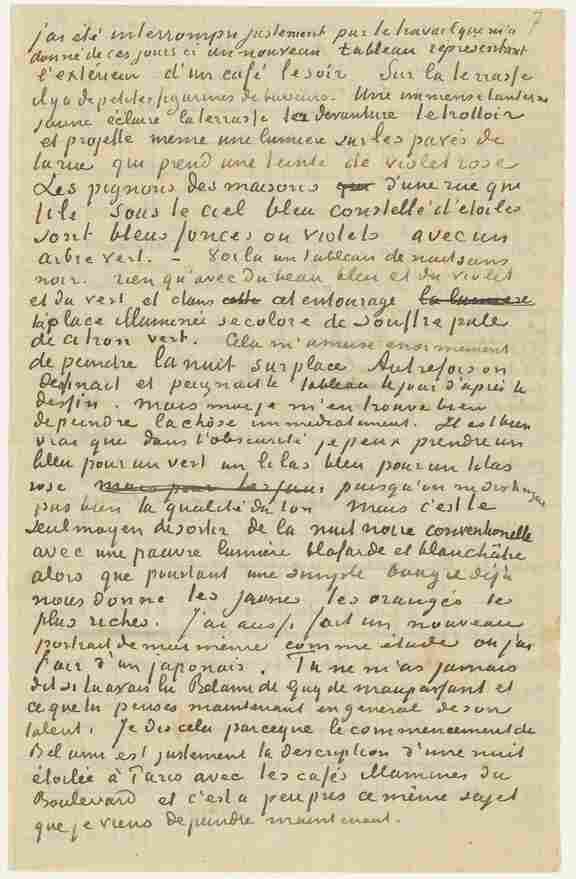 7
j'ai été interrompu justement par le travail que m'a
donné de ces jours ci un nouveau tableau représentant
l'extérieur d'un café le soir. Sur la terrasse
il y a de petites figurines de buveurs. Une immense lanterne
jaune éclaire la terrasse la devanture le trottoir
et projette même une lumière sur les pavés de
la rue qui prend une teinte de violet rose
Les pignons des maisons que d'une rue qui
file sous le ciel bleu constellé d'étoiles
sont bleus foncés ou violets avec un
arbre vert. – Voila un tableau de nuit sans
noir. rien qu'avec du beau bleu et du violet
et du vert et dans cette cet entourage la lumière
la place illuminée se colore de souffre pale
de citron vert. Cela m'amuse enormement
de peindre la nuit sur place Autrefois on
dessinait et peignait le tableau le jour d'après le
dessin. Mais moi je m'en trouve bien
de peindre la chose immédiatement. Il est bien
vrai que dans l'obscurité je peux prendre un
bleu pour un vert un lilas bleu pour un lilas
rose puisqu'on ne distingue
pas bien la qualité du ton Mais c'est le
seul moyen de sortir de la nuit noire conventionelle
avec une pauvre lumière blafarde et blanchâtre
alors que pourtant une simple bougie déjà
nous donne les jaunes les orangés les
plus riches. J'ai aussi fait un nouveau
portrait de moi même comme étude où j'ai
l'air d'un japonais. Tu ne m'as jamais
dit si tu avais lu Bel ami de Guy de maupassant et
ce que tu penses maintenant en general de son
talent. Je dis cela parceque le commencement de
Bel ami est justement la description d'une nuit
étoilée à Paris avec les cafés illuminés du
Boulevard et c'est a peu près ce même sujet
que je viens de peindre maintenant.